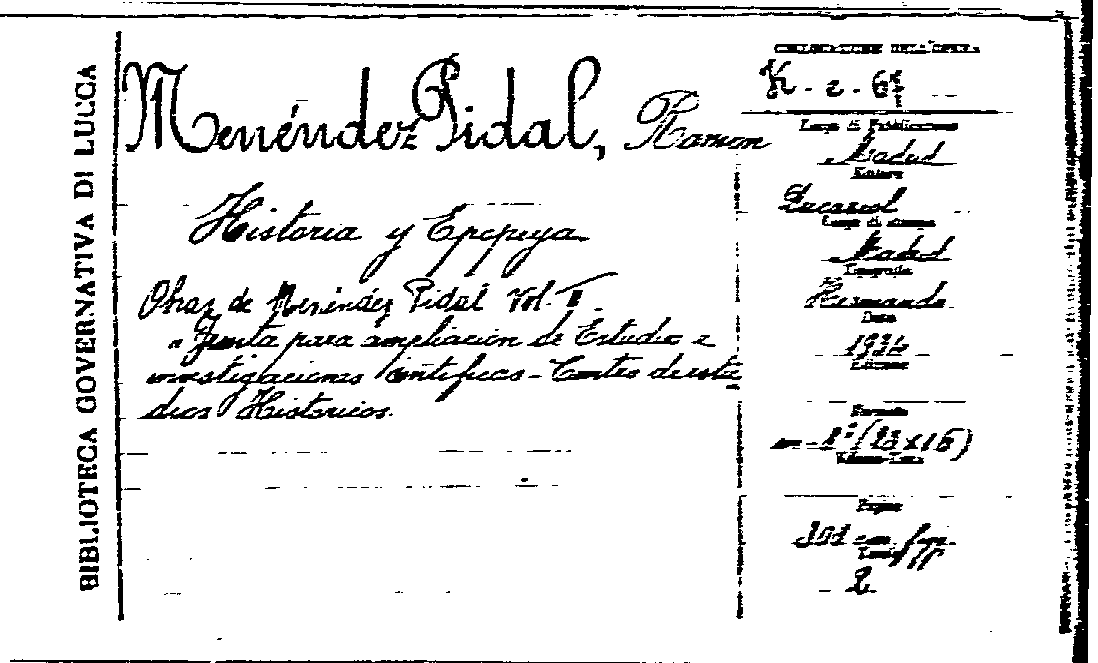 BIBLIOTECA GOVERNATIVA DI LUCCA
Menéndez Pidal, Ramon
Historia y Epopeya
Obras de Menéndez Pidal Vol. II
"Junta para ampliacion de Estudio e
investigaciones cientificas - Centro de estu
dios Historicos.
K - 2 - 6
Luogo di Pubblicazione
Madrid
Editore
Luogo di stampa
Madrid
Tipografia
Hernando
Data
1934
Edizione
Formato
8° (23x16)
Pagine
2